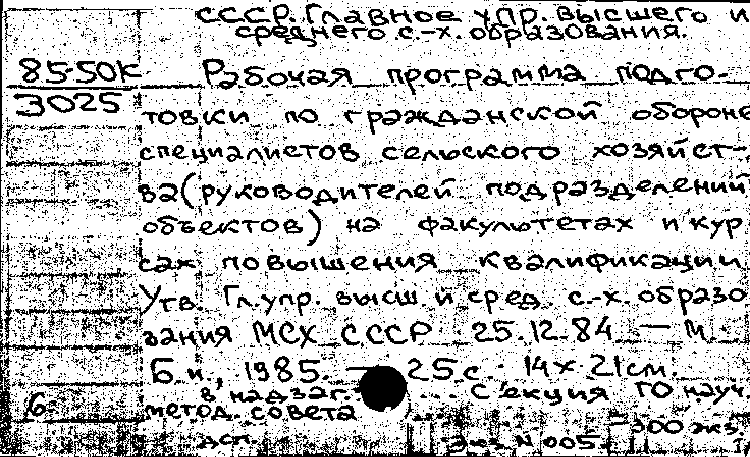 СССР. Главное упр. высшего и
среднего с.-х. образования.
85-50К
3025
Рабочая программа подго-
товки по гражданской обороне
специалистов сельского хозяйст-
ва (руководителей подразделений
объектов) на факультетах и кур
сах повышения квалификации
Утв. Гл. упр. высш. и сред. с.-х. образо
вания МСХ СССР 25.12.84. — М.
Б.и., 1985. — 25 с. 14×21 см.
в надзаг. ... Секция ГО науч.
6
метод. совета
300 экз.
ДСП. Экз. N 005